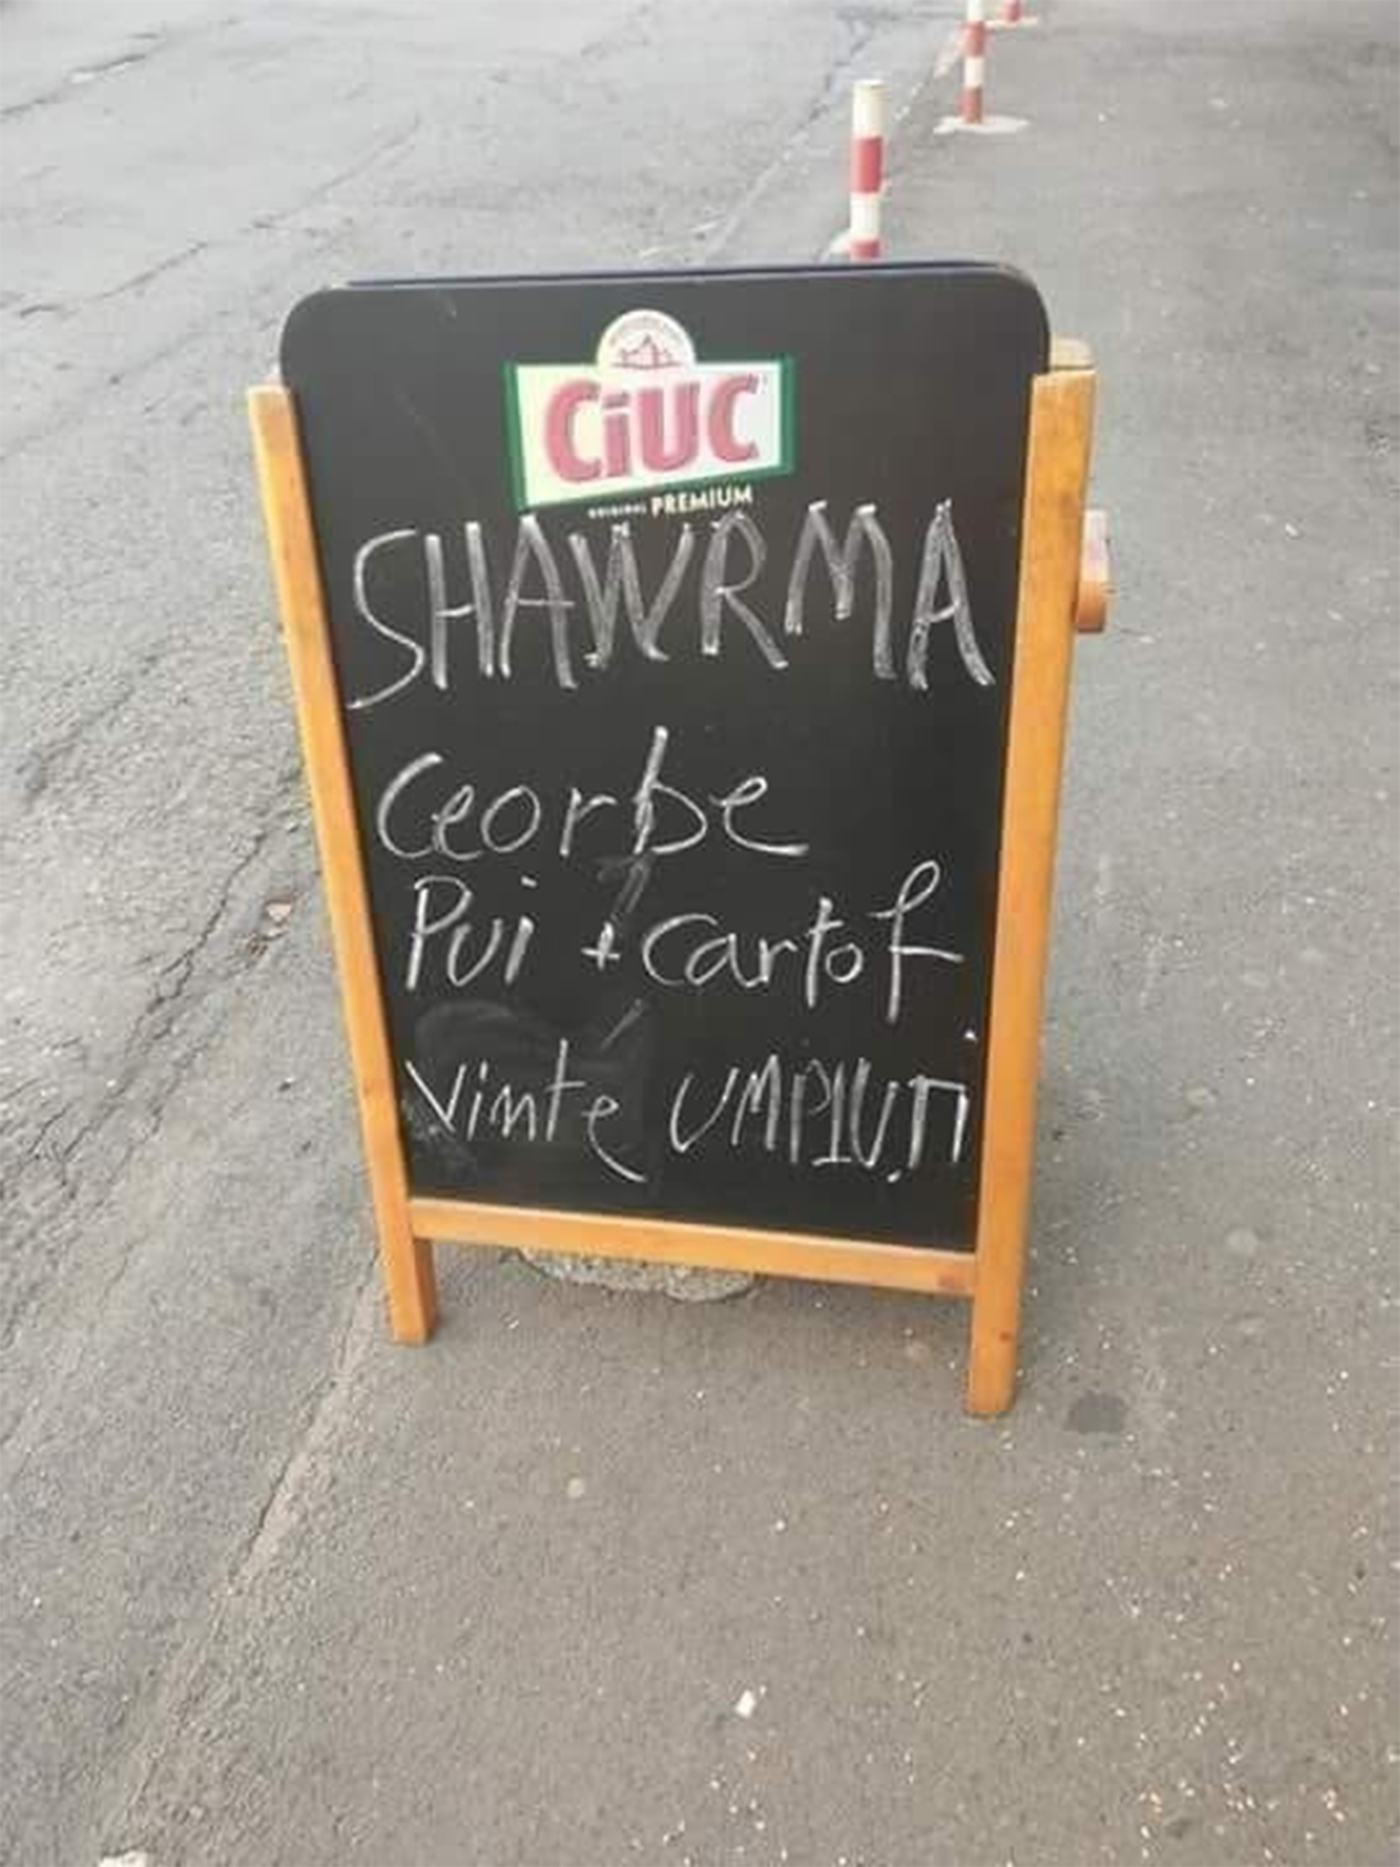 CiUC
ORIGINAL PREMIUM
SHAWRMA
Ceorbe
Pui + cartof
Vinte UMPlUTI